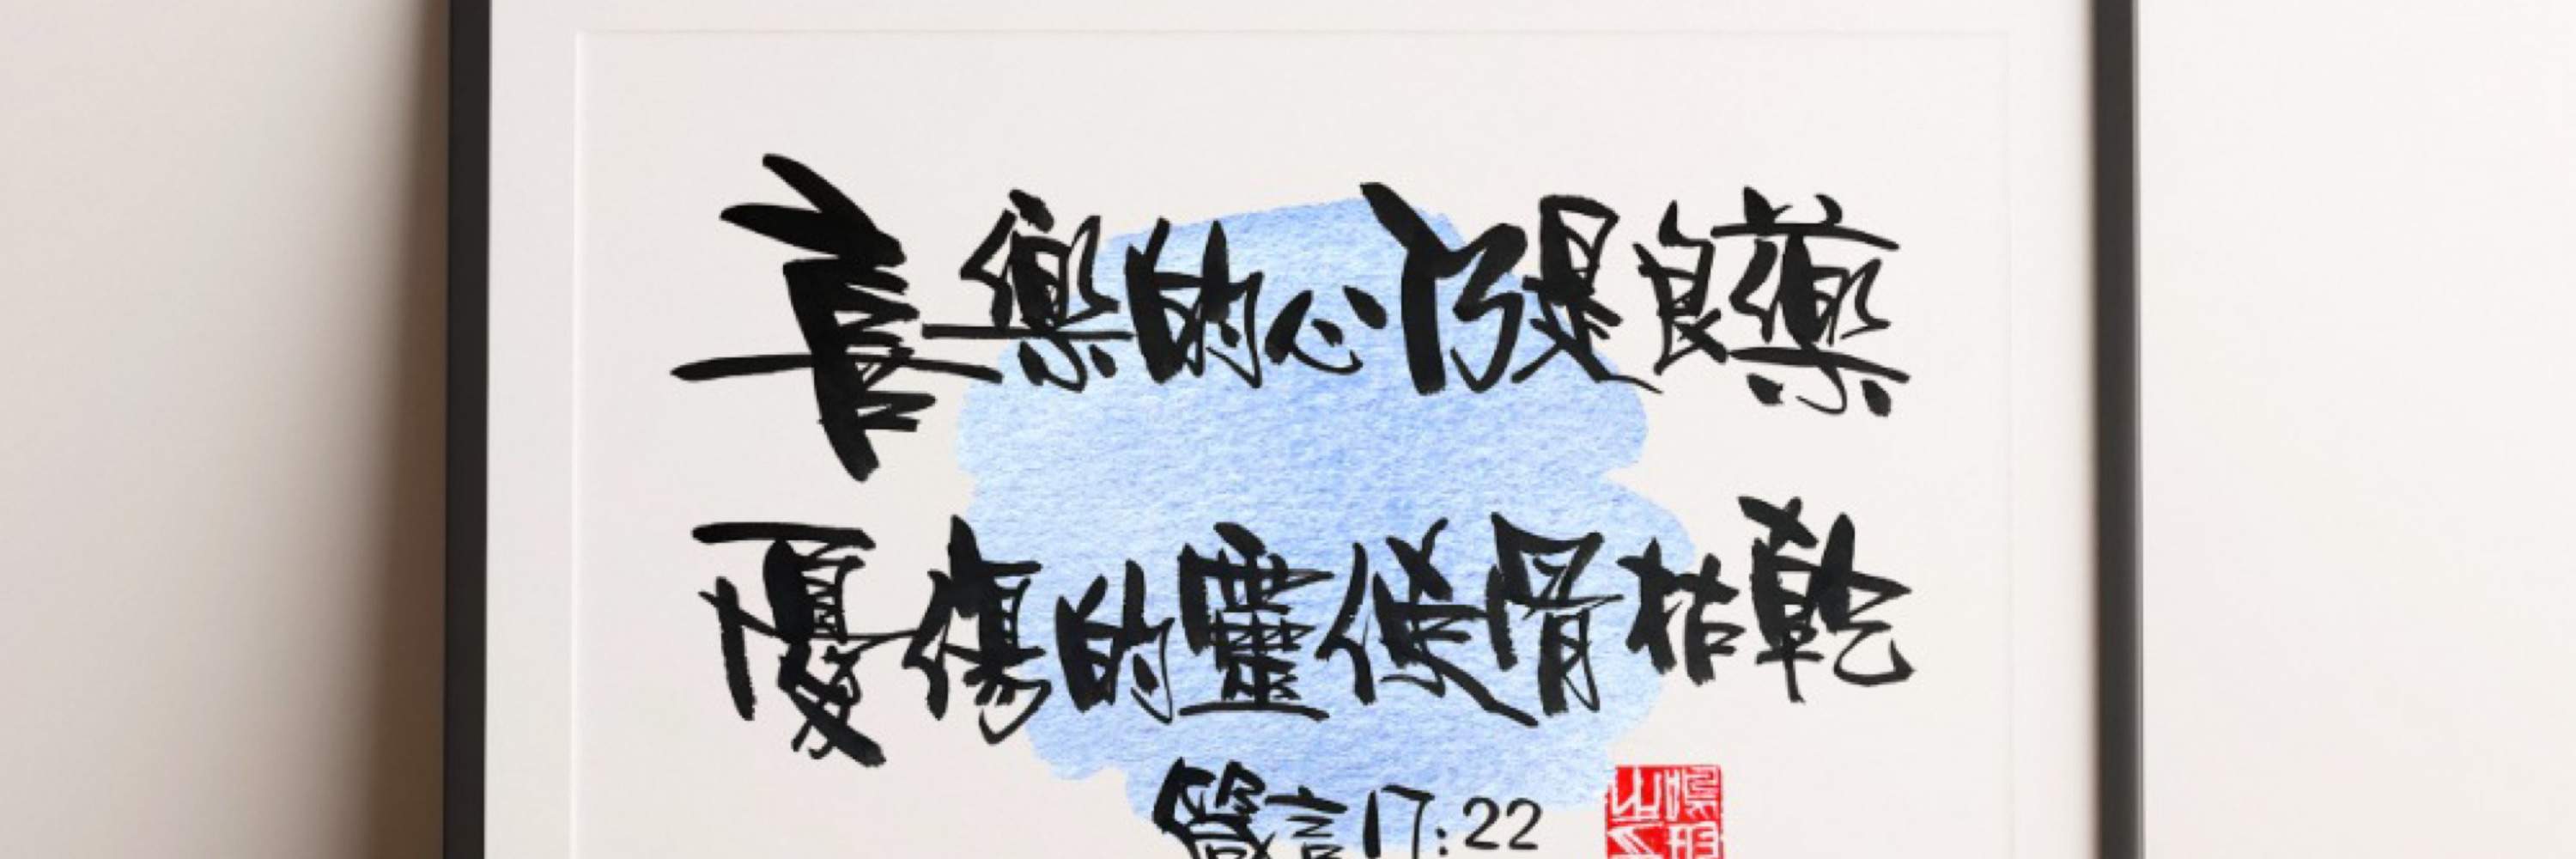 喜樂的心乃是良藥
憂傷的靈使骨枯乾
箴言17:22